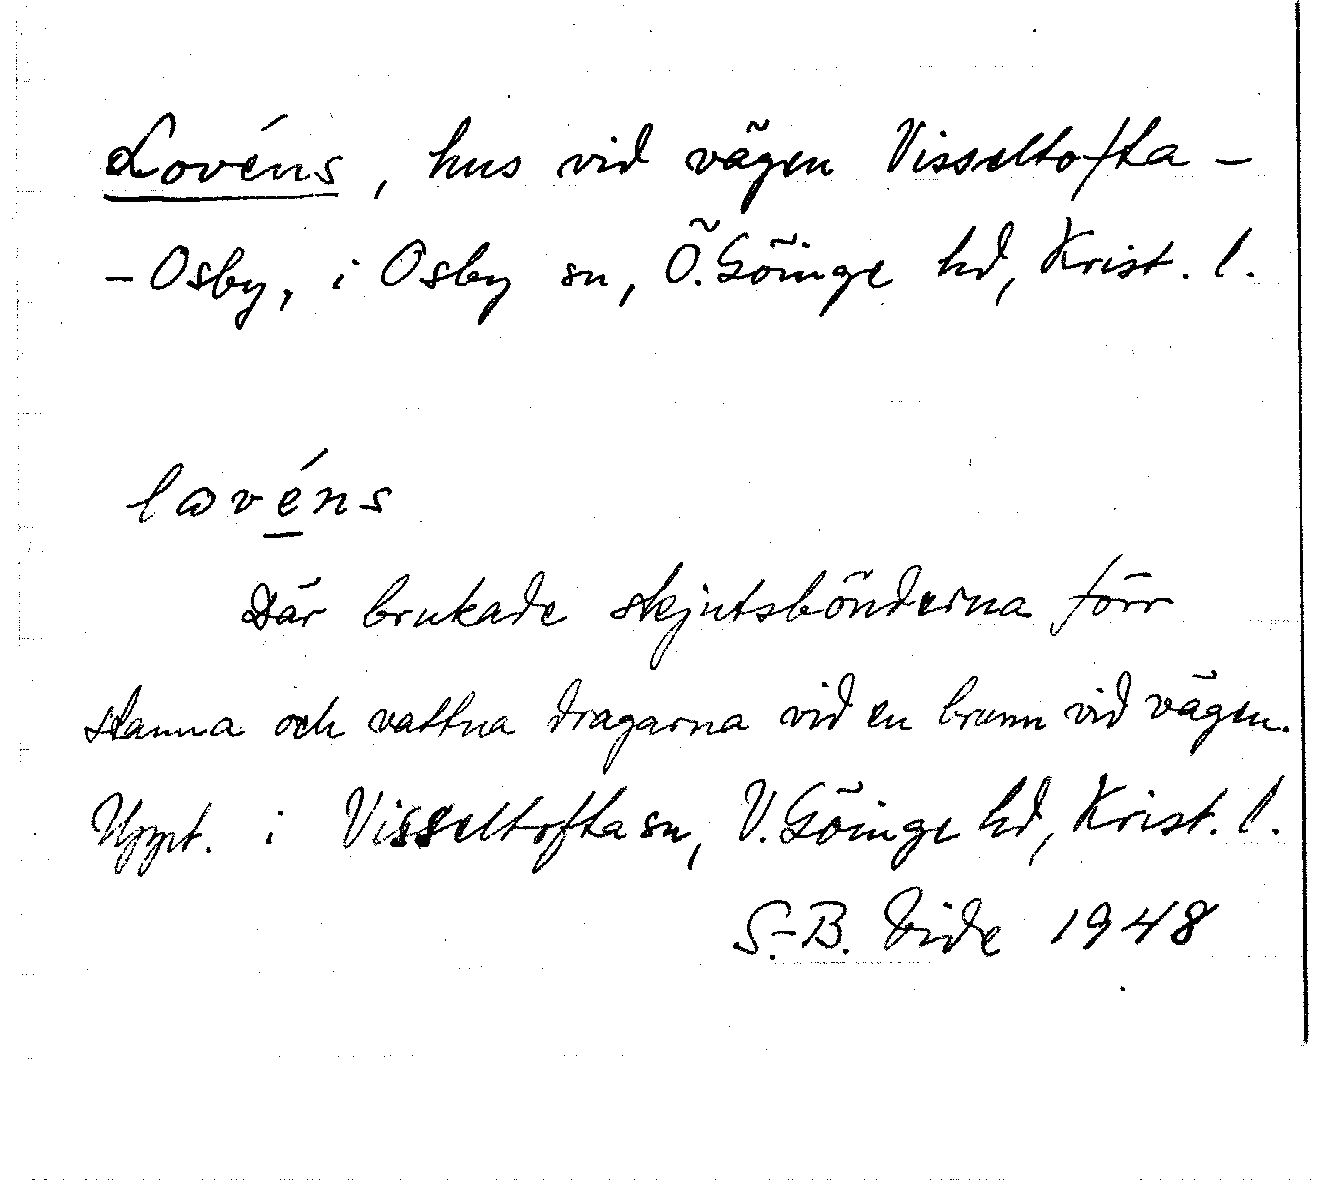 Lovéns, hus vid vägen Visseltofta –
– Osby, i Osby sn, Ö. Göinge hd, Krist. l.
lavéns
Där brukade skjutsbönderna förr
stanna och vattna dragarna vid en brunn vid vägen.
Uppt. i Visseltofta sn, V. Göinge hd, Krist. l.
S.-B. Vide 1948